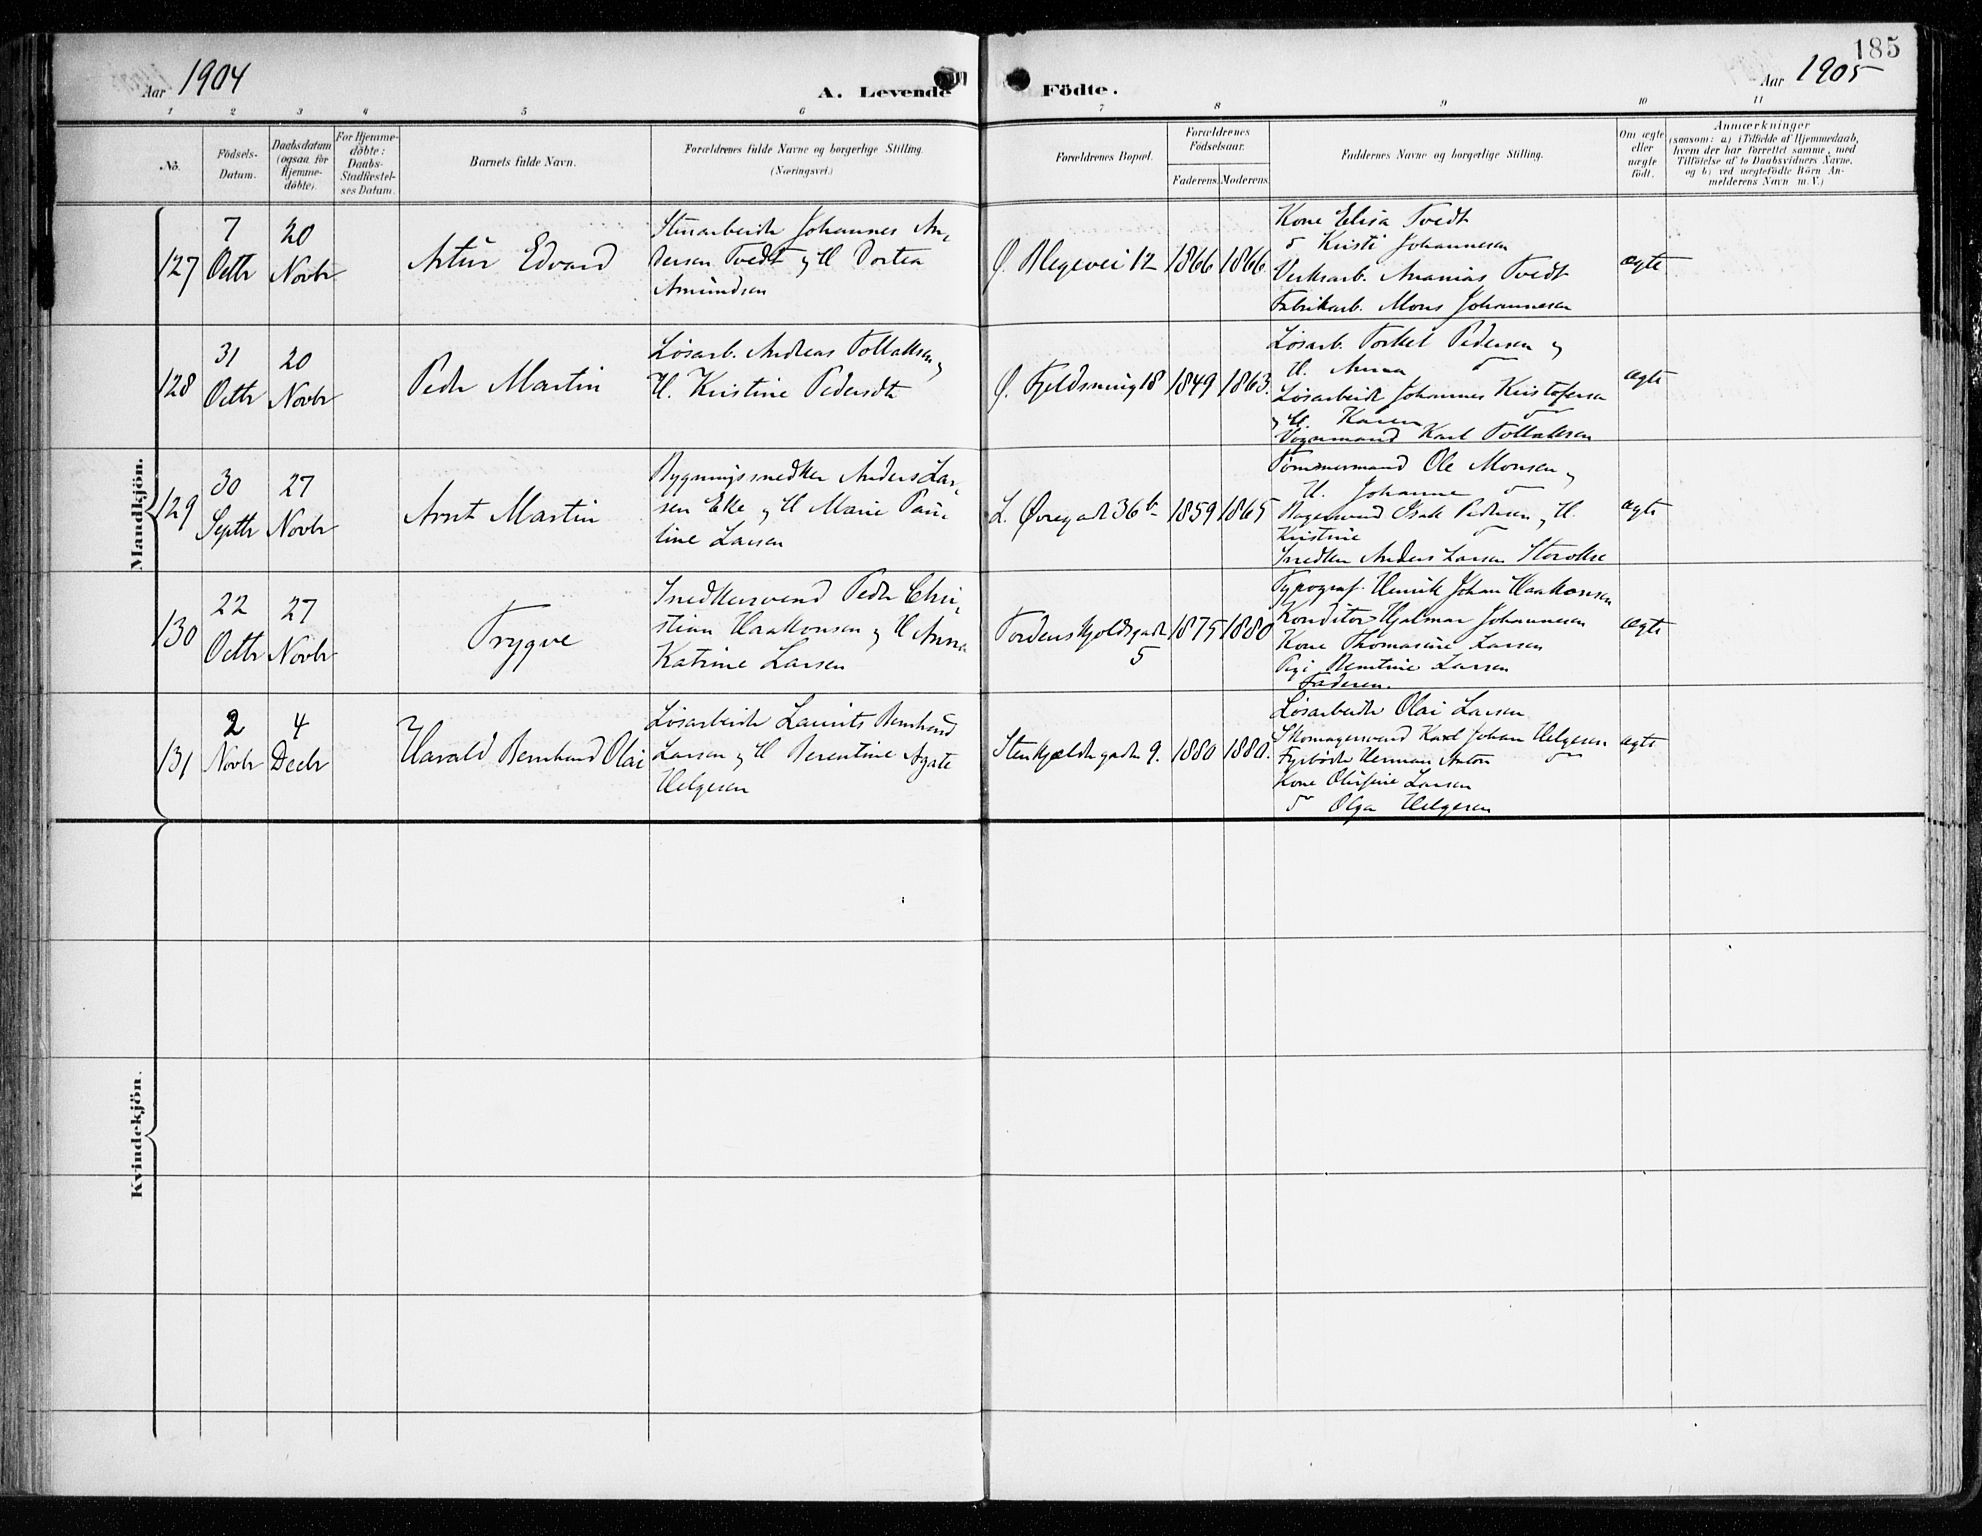 185
Aar 1904
A. Levende Födte.
Aar 1905
1 2 3 4 5 6 7 8 9 10 11
No.
Födsels-
Datum.
Daabsdatum
(ogsaa for
Hjemme-
döbte).
For Hjemme-
döbte:
Daabs-
Stadfæstel-
ses Datum.
Barnets fulde Navn.
Forældrenes fulde Navne og borgerlige Stilling.
(Næringsvei.)
Forældrenes Bopæl.
Forældrenes
Födselsaar.
Faderens. Moderens.
Faddernes Navne og borgerlige Stilling.
Om ægte
eller
uægte
födt.
Anmærkninger
(saasom: a) i Tilfælde af Hjemmedaab,
hvem der har forrettet samme, med
Tilföielse af to Daabsvidners Navne,
og b) ved uægtefödte Börn An-
melderens Navn m. V.)
Mandkjön.
127
7
Octbr
20
Novbr
Artur Edvard
Stenarbeider Johannes An-
dersen Tvedt og H Dortea
Amundsen
Ø. Blegevei 12
1866
1866
Kone Elisa Tvedt
do Kristi Johannesen
Verksarb. Ananias Tvedt
Fabrikarb. Mons Johannesen
ægte
128
31
Octbr
20
Novbr
Peder Martin
Løsarb. Andreas Tollaksen og
H. Kristine Pedersdtr
Ø. Fjeldsmug 18
1849
1863.
Løsarb. Torkel Pedersen og
H. Anna do
Løsarbeider Johannes Kristofersen
og H. Karen do
Vognmand Karl Tollaksen
ægte
129
30
Septbr
27
Novbr
Arnt Martin
Bygningssnedker Anders Lar-
sen Eke og H Marie Pau-
line Larsen
L. Øvregade 36b
1859
1865
Tømmermand Ole Monsen og
H. Johanne do
Bagersvend Isak Pedersen og H.
Kristine do
Snedker Anders Larsen Storokse
ægte
130
22
Octbr
27
Novbr
Trygve
Snedkersvend Peder Chri-
stian Haakonsen og H Anna
Katrine Larsen
Tordenskjoldsgade
5
1875
1880
Typograf Henrik Johan Haakonsen
Konditor Hjalmar Johannesen
Kone Thomasine Larsen
Pige Berntine Larsen
Faderen.
ægte
131
2
Novbr
4
Decbr
Harald Bernhard Olai
Løsarbeider Laurits Bernhard
Larsen og H Berentine Agate
Helgesen
Stenkjeldergaden 9.
1880
1880.
Løsarbeider Olai Larsen
Skomagersvend Karl Johan Helgesen
Fyrbøder Herman Anton do
Kone Olufine Larsen
do Olga Helgesen
ægte
Kvindekjön.